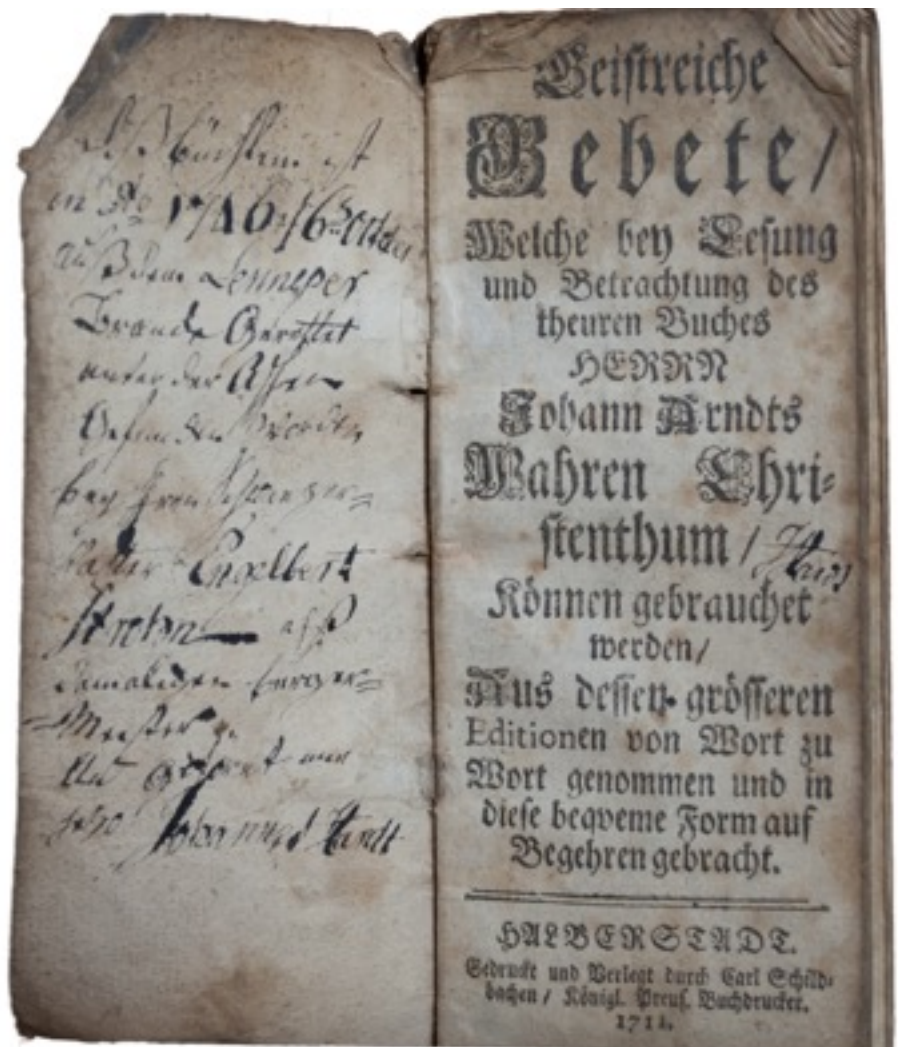 Büchlein ist
in Ao 1746
auß dem Lenneper
Brande Gerettet
unter der Aschen
Gefunden worden
bey
Engelbert
damaligen burger=
Meister
Johannes
Geistreiche
Gebete/
Welche bey Lesung
und Betrachtung des
theuren Buches
HERRN
Johann Arndts
Wahren Chri-
stenthum /
Können gebrauchet
werden/
Aus dessen grösseren
Editionen von Wort zu
Wort genommen und in
diese beqveme Form auf
Begehren gebracht.
HALBERSTADT.
Gedruckt und Verlegt durch Carl Schild-
bachen / Königl. Preus. Buchdrucker.
1711.